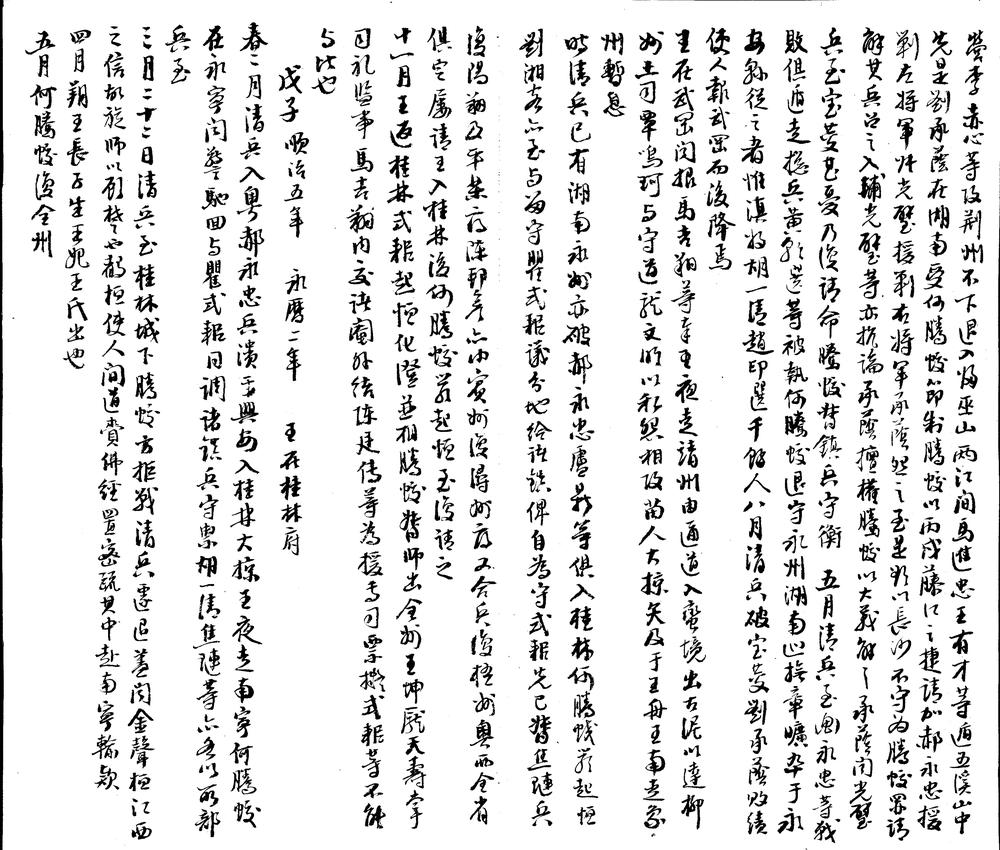 營李赤心等攻荆州不下退入歸巫山兩江間馬進忠王有才等遁五溪山中
先是劉承蔭在湖南受何騰蛟節制騰蛟以丙戌藤江之捷請加郝永忠援
剿左將軍許光璧援剿右將軍承蔭怨之至是欲以長沙不守為騰蛟罪請
解其兵柄之入輔光璧等亦抗論承蔭擅權騰蛟以大義解之承蔭聞光璧
兵至宝慶甚憂乃復請命騰蛟督鎮兵守衡 五月清兵至衡永忠等戰
敗俱遁走總兵黃朝選等被執何騰蛟退守永州湖南巡撫章曠卒于永
安餘從之者惟滇將胡一清趙印選千餘人八月清兵破宝慶劉承蔭敗績
使人報武岡而後降焉
王在武岡聞報馬吉翔等奉王夜走靖州由通道入蠻境出古泥以達柳
州土司覃鳴珂与守道龍文明以私怨相攻苗人大掠矢及于王舟王南走象
州暫息
時清兵已有湖南永州亦破郝永忠盧鼎等俱入桂林何騰蛟嚴起恒
劉湘客亦至与留守瞿式耜議分地給諸鎮俾自為守式耜先已督焦璉兵
復陽朔及平樂府陳邦彥亦由賓州復潯州府又合兵復梧州粵西全省
俱定屬請王入桂林後何騰蛟嚴起恒至復請之
十一月王返桂林式耜起恒化澄並相騰蛟督師出全州王坤龐天壽掌
司礼监事馬吉翔内交諸閹外结陳廷傳等為援專司票擬式耜等不能
与比也
戊子 順治五年 永曆二年 王在桂林府
春二月清兵入粵郝永忠兵潰于興安入桂林大掠王夜走南寧何騰蛟
在永寧聞變馳回与瞿式耜同調诸鎮兵守禦胡一清焦璉等亦各以所部
兵至
三月二十二日清兵至桂林城下騰蛟方拒戰清兵遽退蓋聞金聲桓江西
之信故旋師以顧楚也聲桓使人间道賫佛經置密疏其中赴南寧輸欵
四月朔王長子生王妃王氏出也
五月何騰蛟復全州